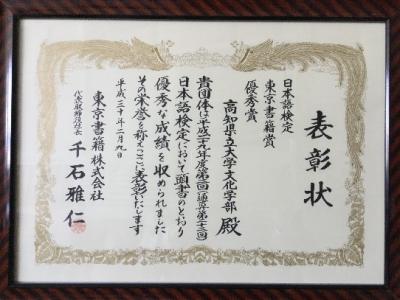 表彰状
日本語検定
東京書籍賞
優秀賞
高知県立大学文化学部 殿
貴団体は平成二十九年度第二回(通算第二十二回)
日本語検定において頭書のとおり
優秀な成績を収められました
その栄誉を称えここに表彰いたします
平成三十年二月九日
東京書籍株式会社
代表取締役社長 千石雅仁